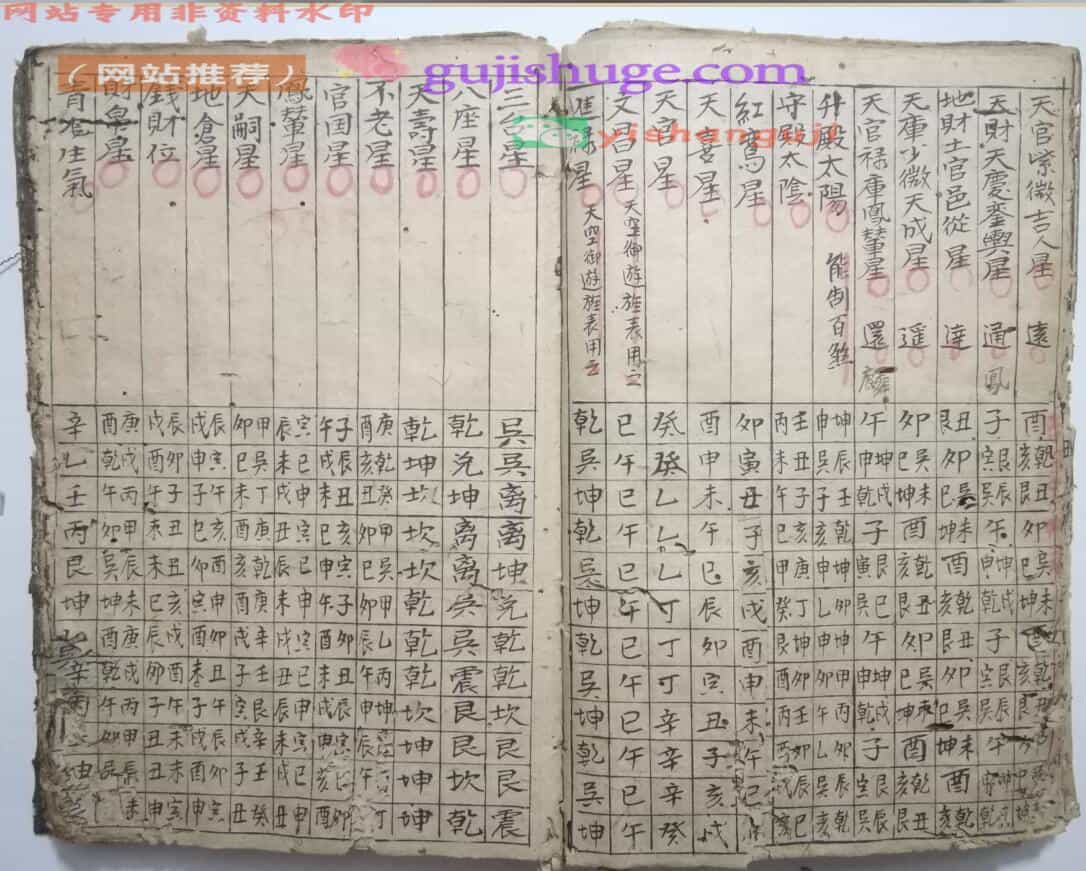 网站专用非资料水印
（网站推荐）
gujishuge.com
yishanguji
天官紫微吉人星 遠 酉 乾亥 丑艮 卯 巽巳 未坤 酉 乾亥
天財天慶鑾輿星 通 鳳 子 艮寅 辰巽 午 坤申 戌乾 子 艮寅 辰巽 午
地財土官邑從星 達 丑艮 卯 巽巳 未坤 酉 乾亥 丑艮 卯 巽巳 未坤 酉 乾亥
天庫少微天成星 遥 卯 巽巳 未坤 酉 乾亥 丑艮 卯 巽巳 未坤 酉 乾亥 丑艮
天官禄庫鳳輦星 還 麟 午 坤申 戌乾 子 艮寅 巳巽 午 坤申 戌乾 子 艮寅 辰巽
升殿太陽 能制百煞 坤申 辰巽 壬子 乾亥 坤申 卯乙 坤申 甲卯 丙午 卯乙 辰巽 乾亥
守殿太陰 壬丙 丑未 子午 亥巳 庚甲 丁癸 坤艮 卯酉 壬丙 卯 辰戌 巳亥
紅鸞星 卯 寅 丑 子 亥 戌 酉 申 未 午 巳
天喜星 酉 申 未 午 巳 辰 卯 寅 丑 子 亥 戌
天官星 癸 癸 乙 乙 乙 丁 丁 丁 辛 辛 辛 癸
文昌星 天空御遊旌表用之 巳 午 巳 午 巳 午 巳 午 巳 午 巳 午
禄星 天空御遊旌表用之 乾 巽 坤 乾 巽 坤 乾 巽 坤 乾 巽 坤
三台星 巽 巽 离 离 坤 兑 乾 乾 坎 艮 艮 震
八座星 乾 兑 坤 离 离 巽 巽 震 艮 艮 坎 乾
天壽星 乾 坤 坎 坎 坎 乾 乾 乾 坎 坤 坤 坤
不老星 庚酉 乾亥 癸丑 甲卯 巽巳 甲卯 乙辰 丙午 坤申
官国星 子午 辰戌 丑未 亥巳 寅申 子午 卯酉 丑未 辰戌 寅申
鳳輦星 寅辰 巳未 申戌 寅丑 巳辰 申未 寅戌 巳丑 申辰 寅未 巳戌 申丑
天嗣星 甲卯 巽巳 丁未 庚酉 乾亥 庚酉 辛戌 壬子 艮寅 辛戌 壬子 癸丑
地倉星 辰戌 寅申 午子 亥巳 酉卯 申寅 卯酉 丑未 午子 辰戌 卯酉 寅申
錢財位 辰戌 卯酉 子午 丑未 丑未 亥巳 戌辰 酉卯 午子 未丑 未丑 寅申
財帛星 庚酉 戌乾 丙午 甲卯 辰巽 未坤 庚酉 戌乾 丙午 甲卯
生氣 辛 乙 壬 丙 艮 坤 巽 辛